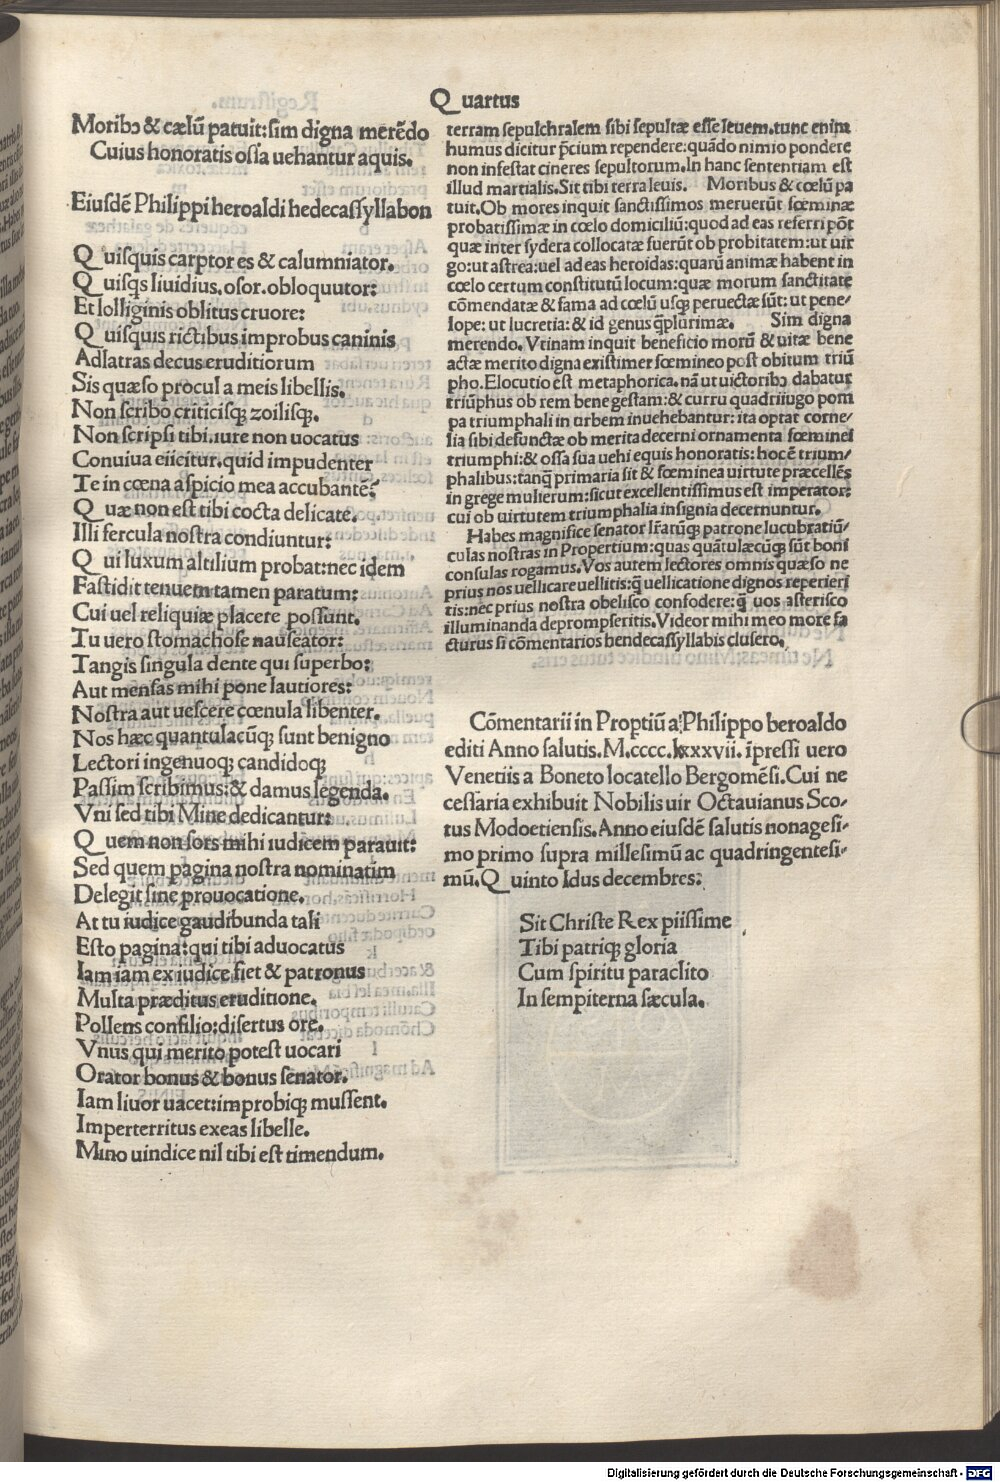 Quartus
Moribꝯ & cælū patuit: sim digna merēdo
Cuius honoratis ossa uehantur aquis.
Eiusdē Philippi heroaldi hedecassyllabon
Quisquis carptor es & calumniator.
Quisqs liuidius. osor. obloquutor:
Et lolliginis oblitus cruore:
Quisquis rictibus improbus caninis
Adlatras decus eruditiorum
Sis quæso procul a meis libellis.
Non scribo criticisq; zoilisq;.
Non scripsi tibi. iure non uocatus
Conuiua eiicitur. quid impudenter
Te in cœna aspicio mea accubantē:
Quæ non est tibi cocta delicate.
Illi fercula nostra condiuntur:
Qui luxum altilium probat: nec idem
Fastidit tenuem tamen paratum:
Cui uel reliquiæ placere possunt.
Tu uero stomachose nauseator:
Tangis singula dente qui superbo:
Aut mensas mihi pone lautiores:
Nostra aut uescere cœnula libenter.
Nos hæc quantulacūq; sunt benigno
Lectori ingenuoq; candidoq;
Passim scribimus: & damus legenda.
Vni sed tibi Mine dedicantur:
Quem non sors mihi iudicem parauit:
Sed quem pagina nostra nominatim
Delegit sine prouocatione.
At tu iudice gaudibunda tali
Esto pagina: qui tibi aduocatus
Iam iam ex iudice fiet & patronus
Multa præditus eruditione.
Pollens consilio: disertus ore.
Vnus qui merito potest uocari
Orator bonus & bonus senator.
Iam liuor uacet: improbiq; mussent.
Imperterritus exeas libelle.
Mino uindice nil tibi est timendum.
terram sepulchralem sibi sepultæ esse leuem. tunc enim
humus dicitur p̄cium rependere: quādo nimio pondere
non infestat cineres sepultorum. In hanc sententiam est
illud martialis. Sit tibi terra leuis. Moribus & cœlū pa
tuit. Ob mores inquit sanctissimos meruerūt fœminæ
probatissimæ in cœlo domiciliū: quod ad eas referri pōt
quæ inter sydera collocatæ fuerūt ob probitatem: ut uir
go: ut astrea: uel ad eas heroidas: quarū animæ habent in
cœlo certum constitutū locum: quæ morum sanctitate
cōmendatæ & fama ad cœlū usq; peruectæ sūt: ut pene-
lope: ut lucretia: & id genus q̄plurimæ. Sim digna
merendo. Vtinam inquit beneficio morū & uitæ bene
actæ merito digna existimer fœmineo post obitum triū
pho. Elocutio est metaphorica. nā ut uictoribꝯ dabatur
triūphus ob rem bene gestam: & curru quadriiugo pom
pa triumphali in urbem inuehebantur: ita optat corne-
lia sibi defunctæ ob merita decerni ornamenta fœminei
triumphi: & ossa sua uehi equis honoratis: hoc ē trium-
phalibus: tanq̄ primaria sit & fœminea uirtute præcellēs
in grege mulierum: sicut excellentissimus est imperator:
cui ob uirtutem triumphalia insignia decernuntur.
Habes magnifice senator lr̄atūq; patrone lucubratiū-
culas nostras in Propertium: quas quātulæcūq; sūt boni
consulas rogamus. Vos autem lectores omnis quæso ne
prius nos uellicare uellitis: q̄ uellicatione dignos reperieri
tis: nec prius nostra obelisco confodere: q̄ uos asterisco
illuminanda deprompseritis. Videor mihi meo more fa
cturus si cōmentarios hendecassyllabis clusero.
Cōmentarii in Propertiū a Philippo beroaldo
editi Anno salutis. M.cccc.lxxxvii. īpressi uero
Venetiis a Boneto locatello Bergomēsi. Cui ne
cessaria exhibuit Nobilis uir Octauianus Sco-
tus Modoetiensis. Anno eiusdē salutis nonagesi-
mo primo supra millesimū ac quadringentesi-
mū. Quinto Idus decembres:
Sit Christe Rex piissime
Tibi patriq; gloria
Cum spiritu paraclito
In sempiterna sæcula.
Digitalisierung gefördert durch die Deutsche Forschungsgemeinschaft - DFG